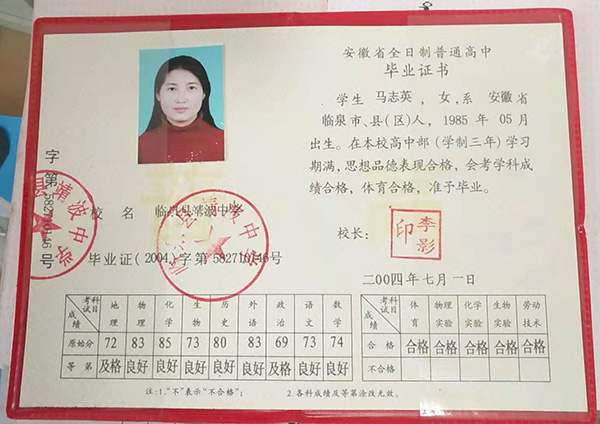 安徽省全日制普通高中
毕业证书
学生 马志英，女，系 安徽省
临泉市、县(区)人，1985年 05月
出生。在本校高中部（学制三年）学习
期满，思想品德表现合格，会考学科成
绩合格，体育合格，准予毕业。
校长：
李影
印
二00四年七月一日
字第582710146号
县靖波中学
校 名 临泉县靖波中学
毕业证(2004)字第582710146号
考试科目 成绩 地理 物理 化学 生物 历史 外语 政治 语文 数学
原始分 72 83 85 73 80 83 69 73 74
等第 及格 良好 良好 良好 良好 良好 及格 良好 良好
考查科目 成绩 体育 物理实验 化学实验 生物实验 劳动技术
合格 合格 合格 合格 合格 合格
不合格
注：1."不"表示"不合格"； 2.各科成绩及等第涂改无效。